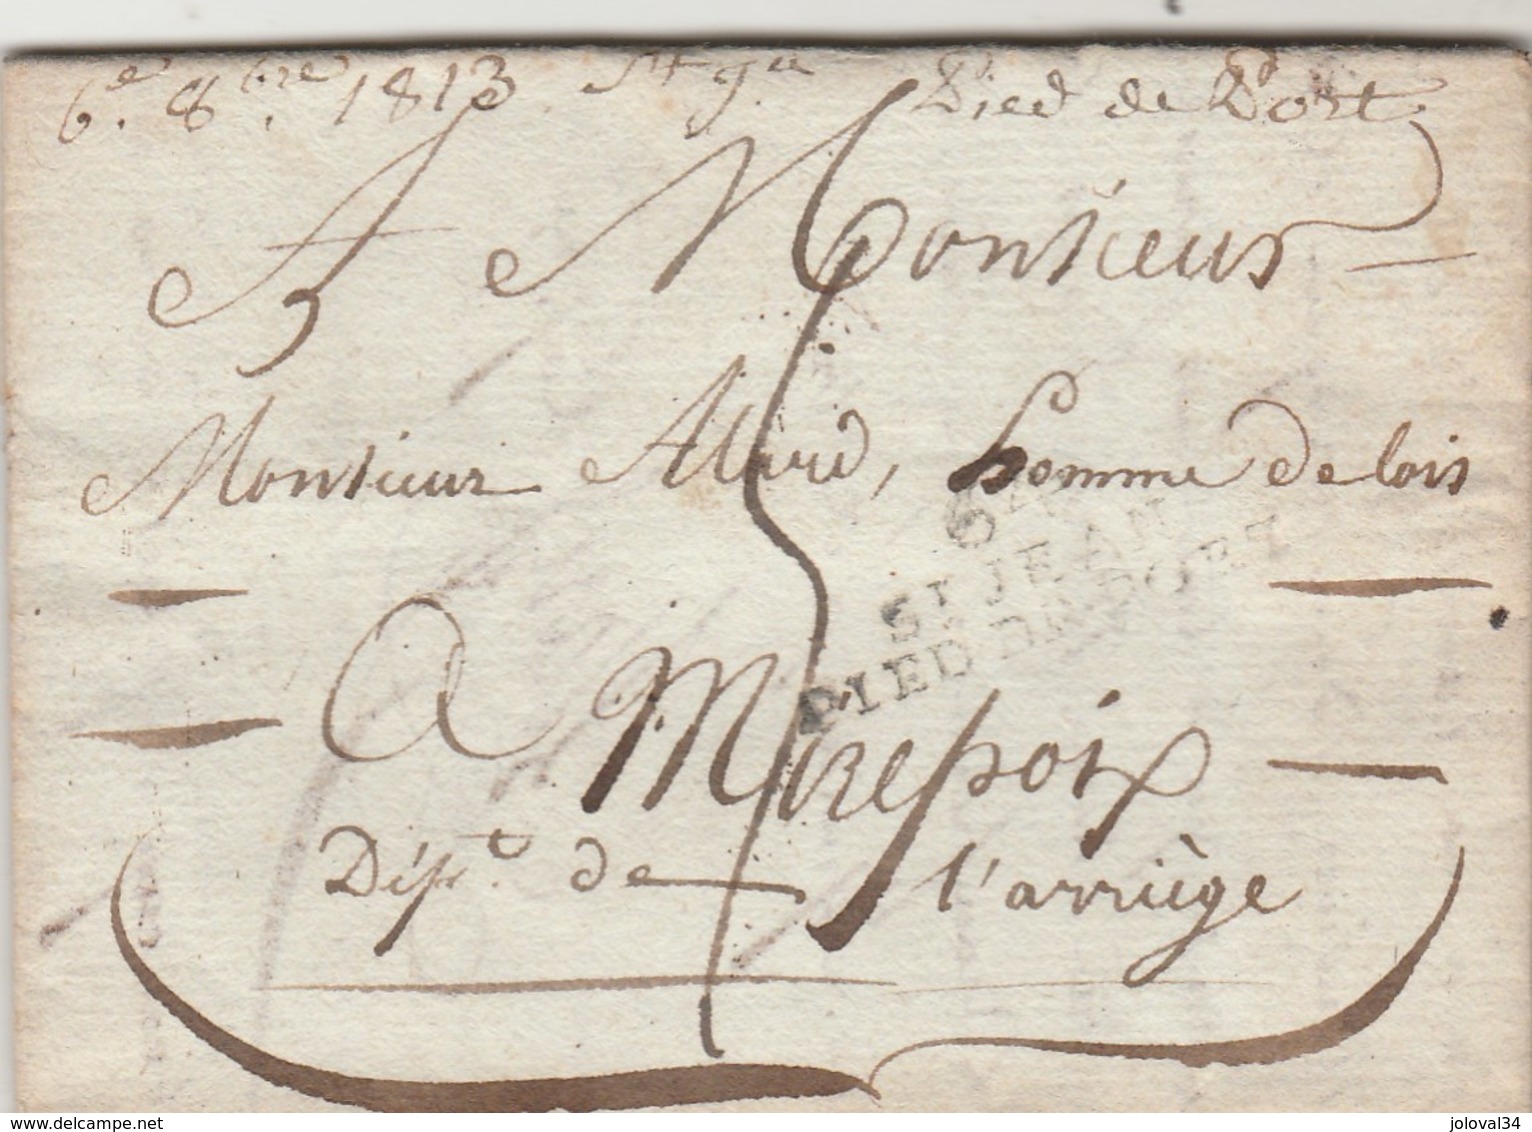 6.e 8.bre 1813 St Jn Pied de Port
A Monsieur
Monsieur Allard, homme de lois
64
ST JEAN
PIED DE PORT
A Mirepoix
Dépt. de l'arriège
www.delcampe.net
joloval34